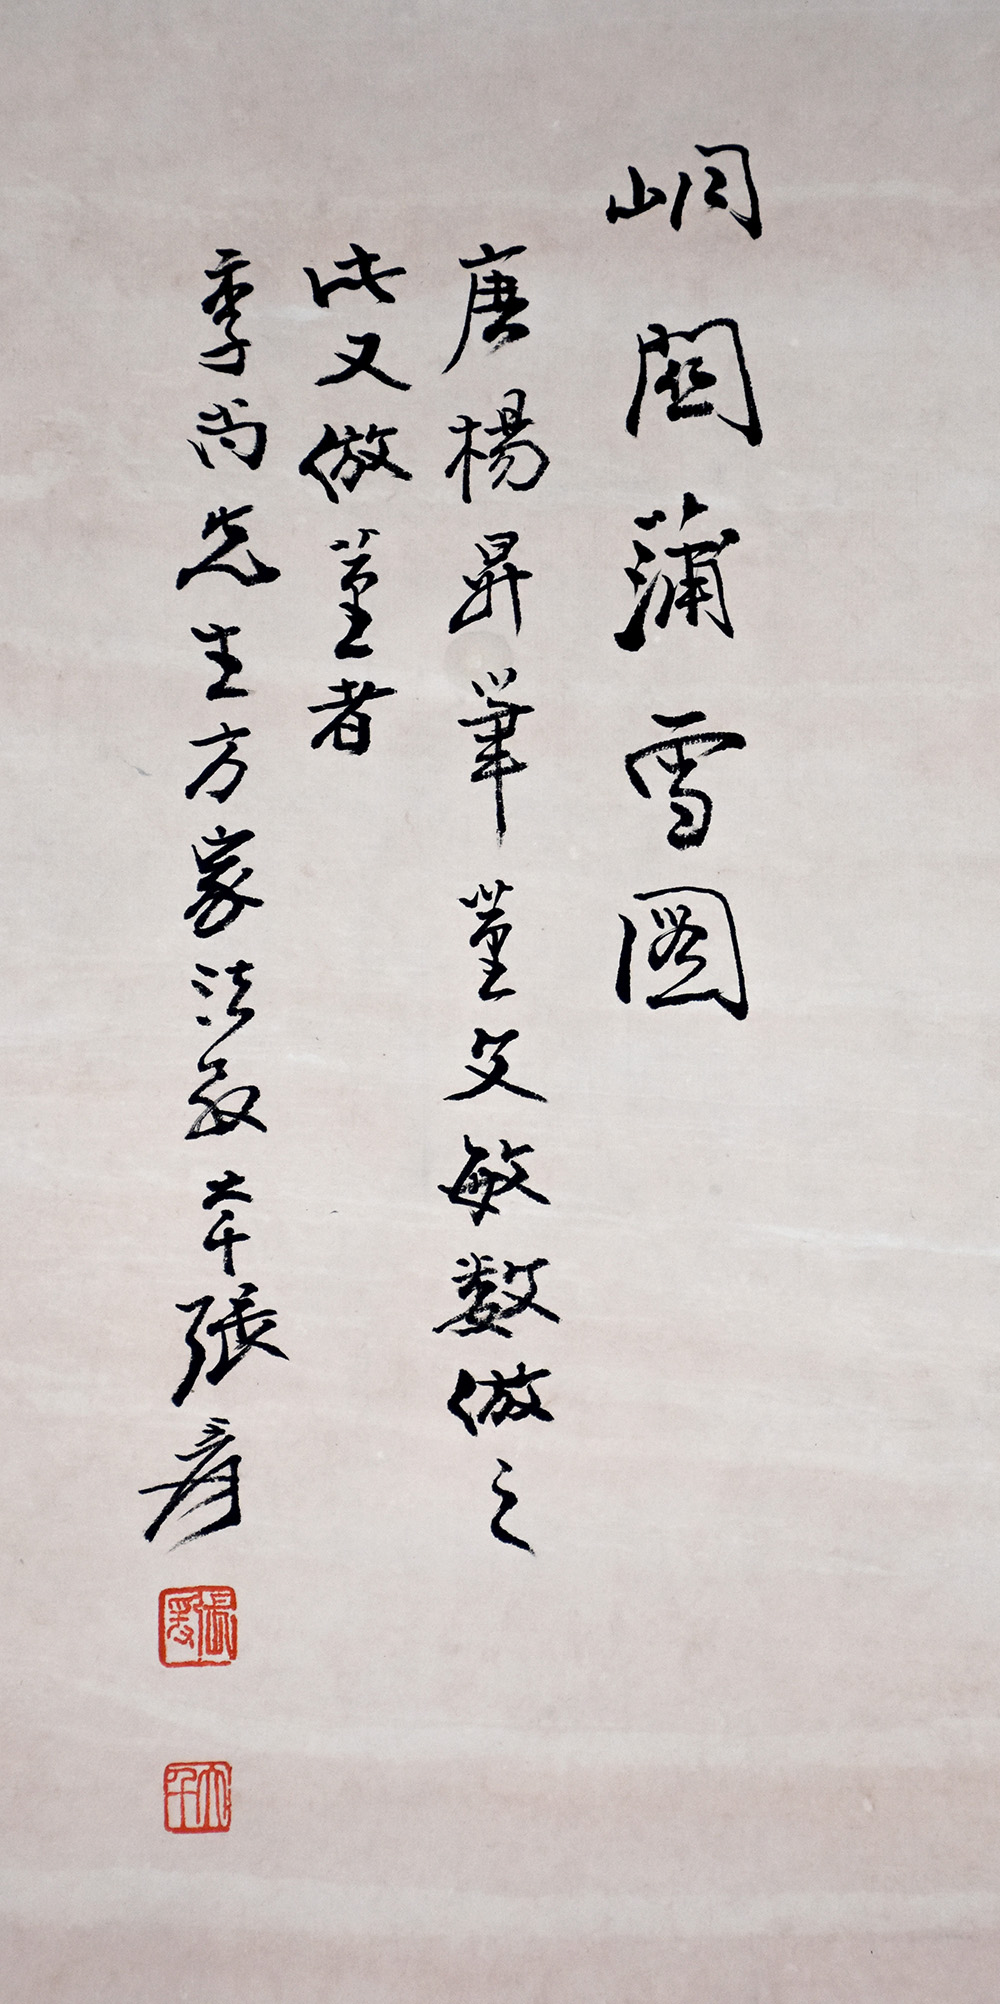 峒關蒲雪圖
唐楊昇筆董文敏數倣之
此又倣董者
季尚先生方家法教大千張爰
張爰
大千